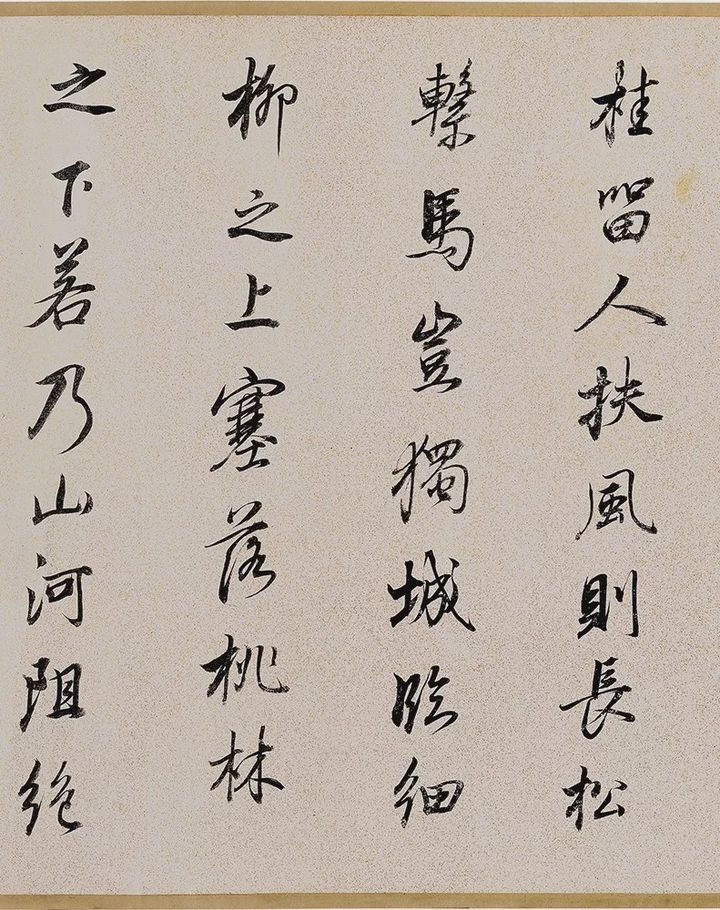 桂留人扶風則長松
繫馬豈獨城臨細
柳之上塞落桃林
之下若乃山河阻絶